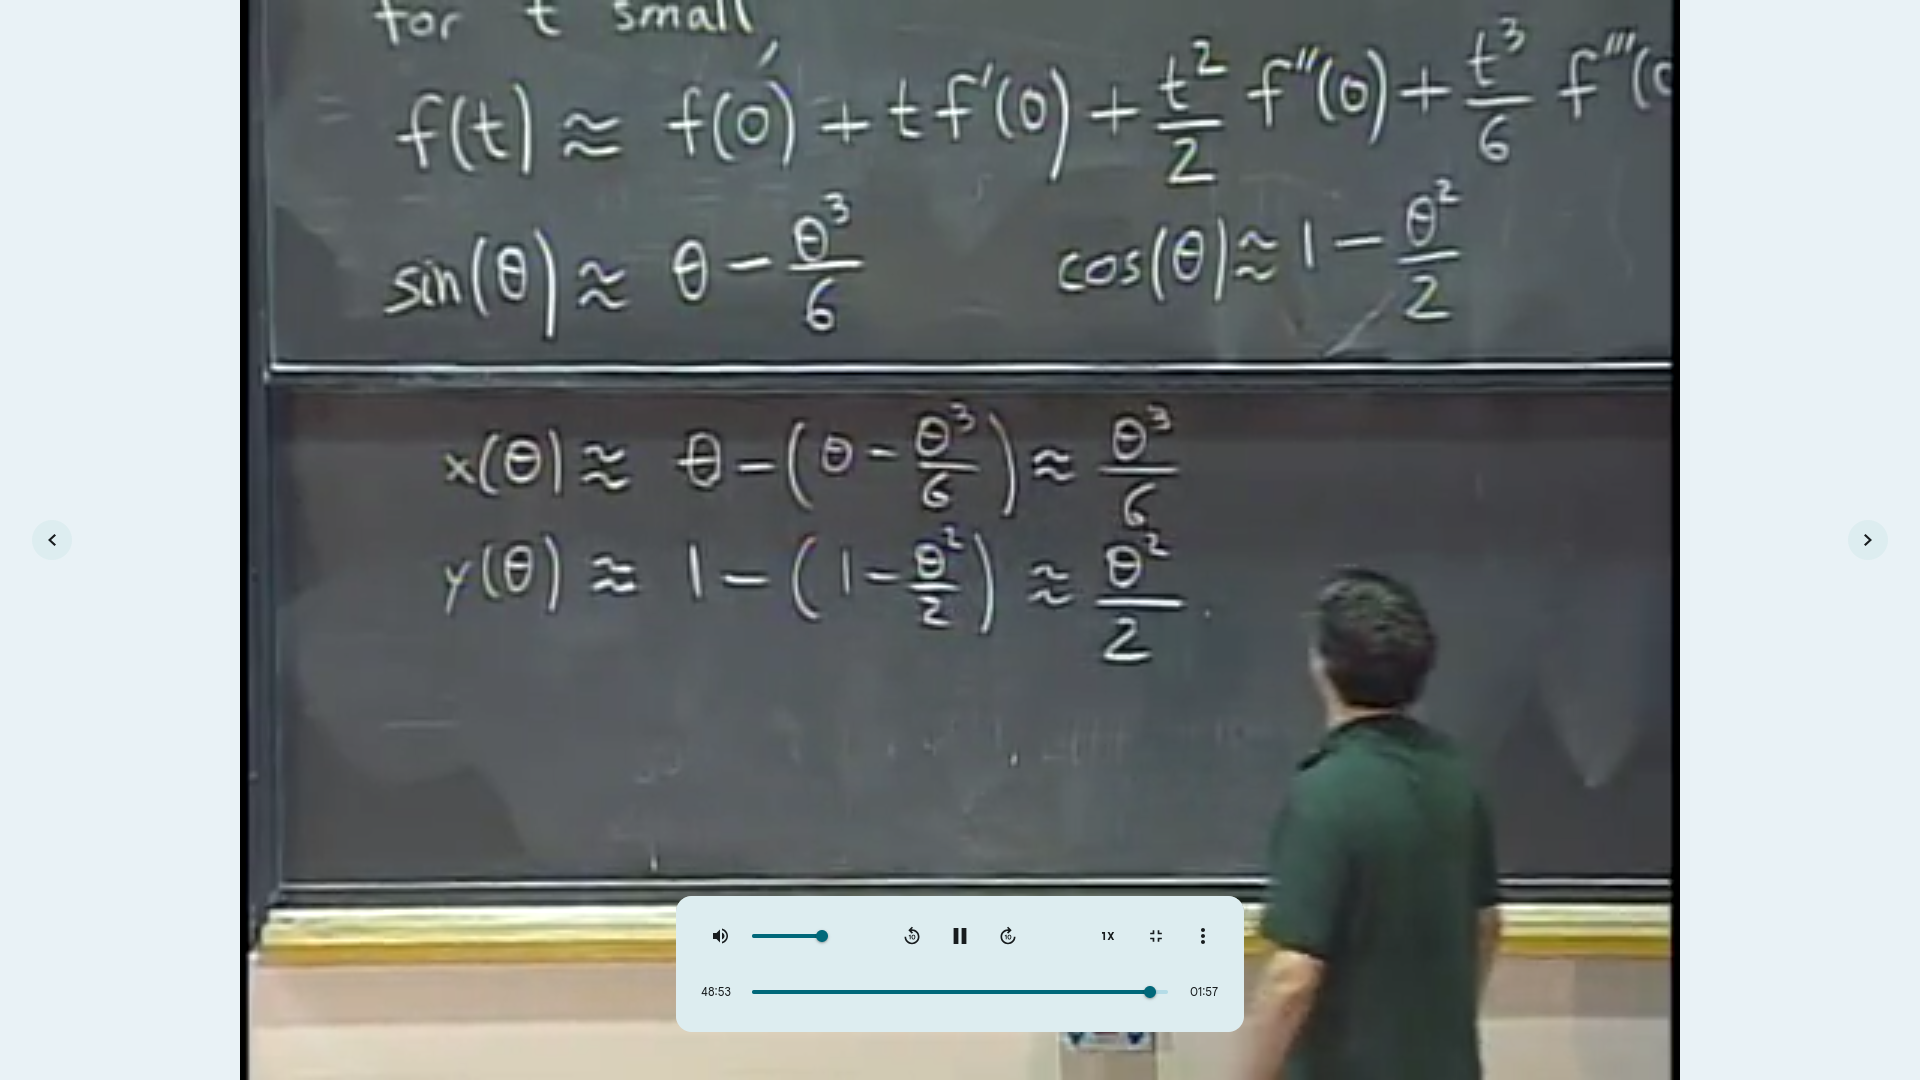 for t small,
f(t) ≈ f(0) + t f'(0) + t²/2 f''(0) + t³/6 f'''(0
sin(θ) ≈ θ - θ³/6 cos(θ) ≈ 1 - θ²/2
x(θ) ≈ θ - (θ - θ³/6) ≈ θ³/6
y(θ) ≈ 1 - (1 - θ²/2) ≈ θ²/2
10 10 1X
48:53 01:57